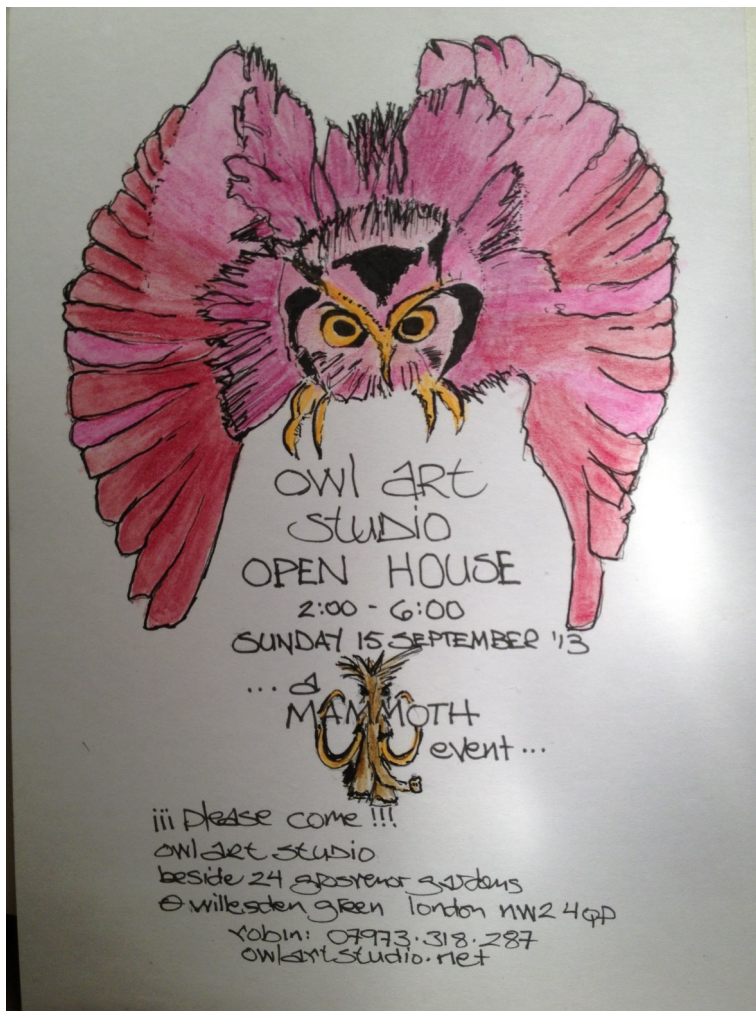 owl art
studio
OPEN HOUSE
2:00 - 6:00
SUNDAY 15 SEPTEMBER '13
... a
MAMMOTH
event ...
¡¡¡ please come !!!
owl art studio
beside 24 grosvenor gardens
⊖ willesden green london nw2 4QP
robin: 07973·318·287
owlartstudio.net